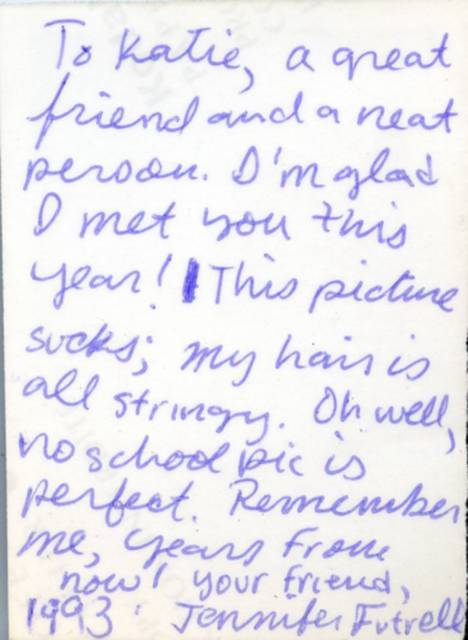 To Katie, a great
friend and a neat
person. I'm glad
I met you this
year! This picture
sucks; my hair is
all stringy. Oh well,
no school pic is
perfect. Remember
me, years from
now! Your friend,
1993 Jennifer Futrell